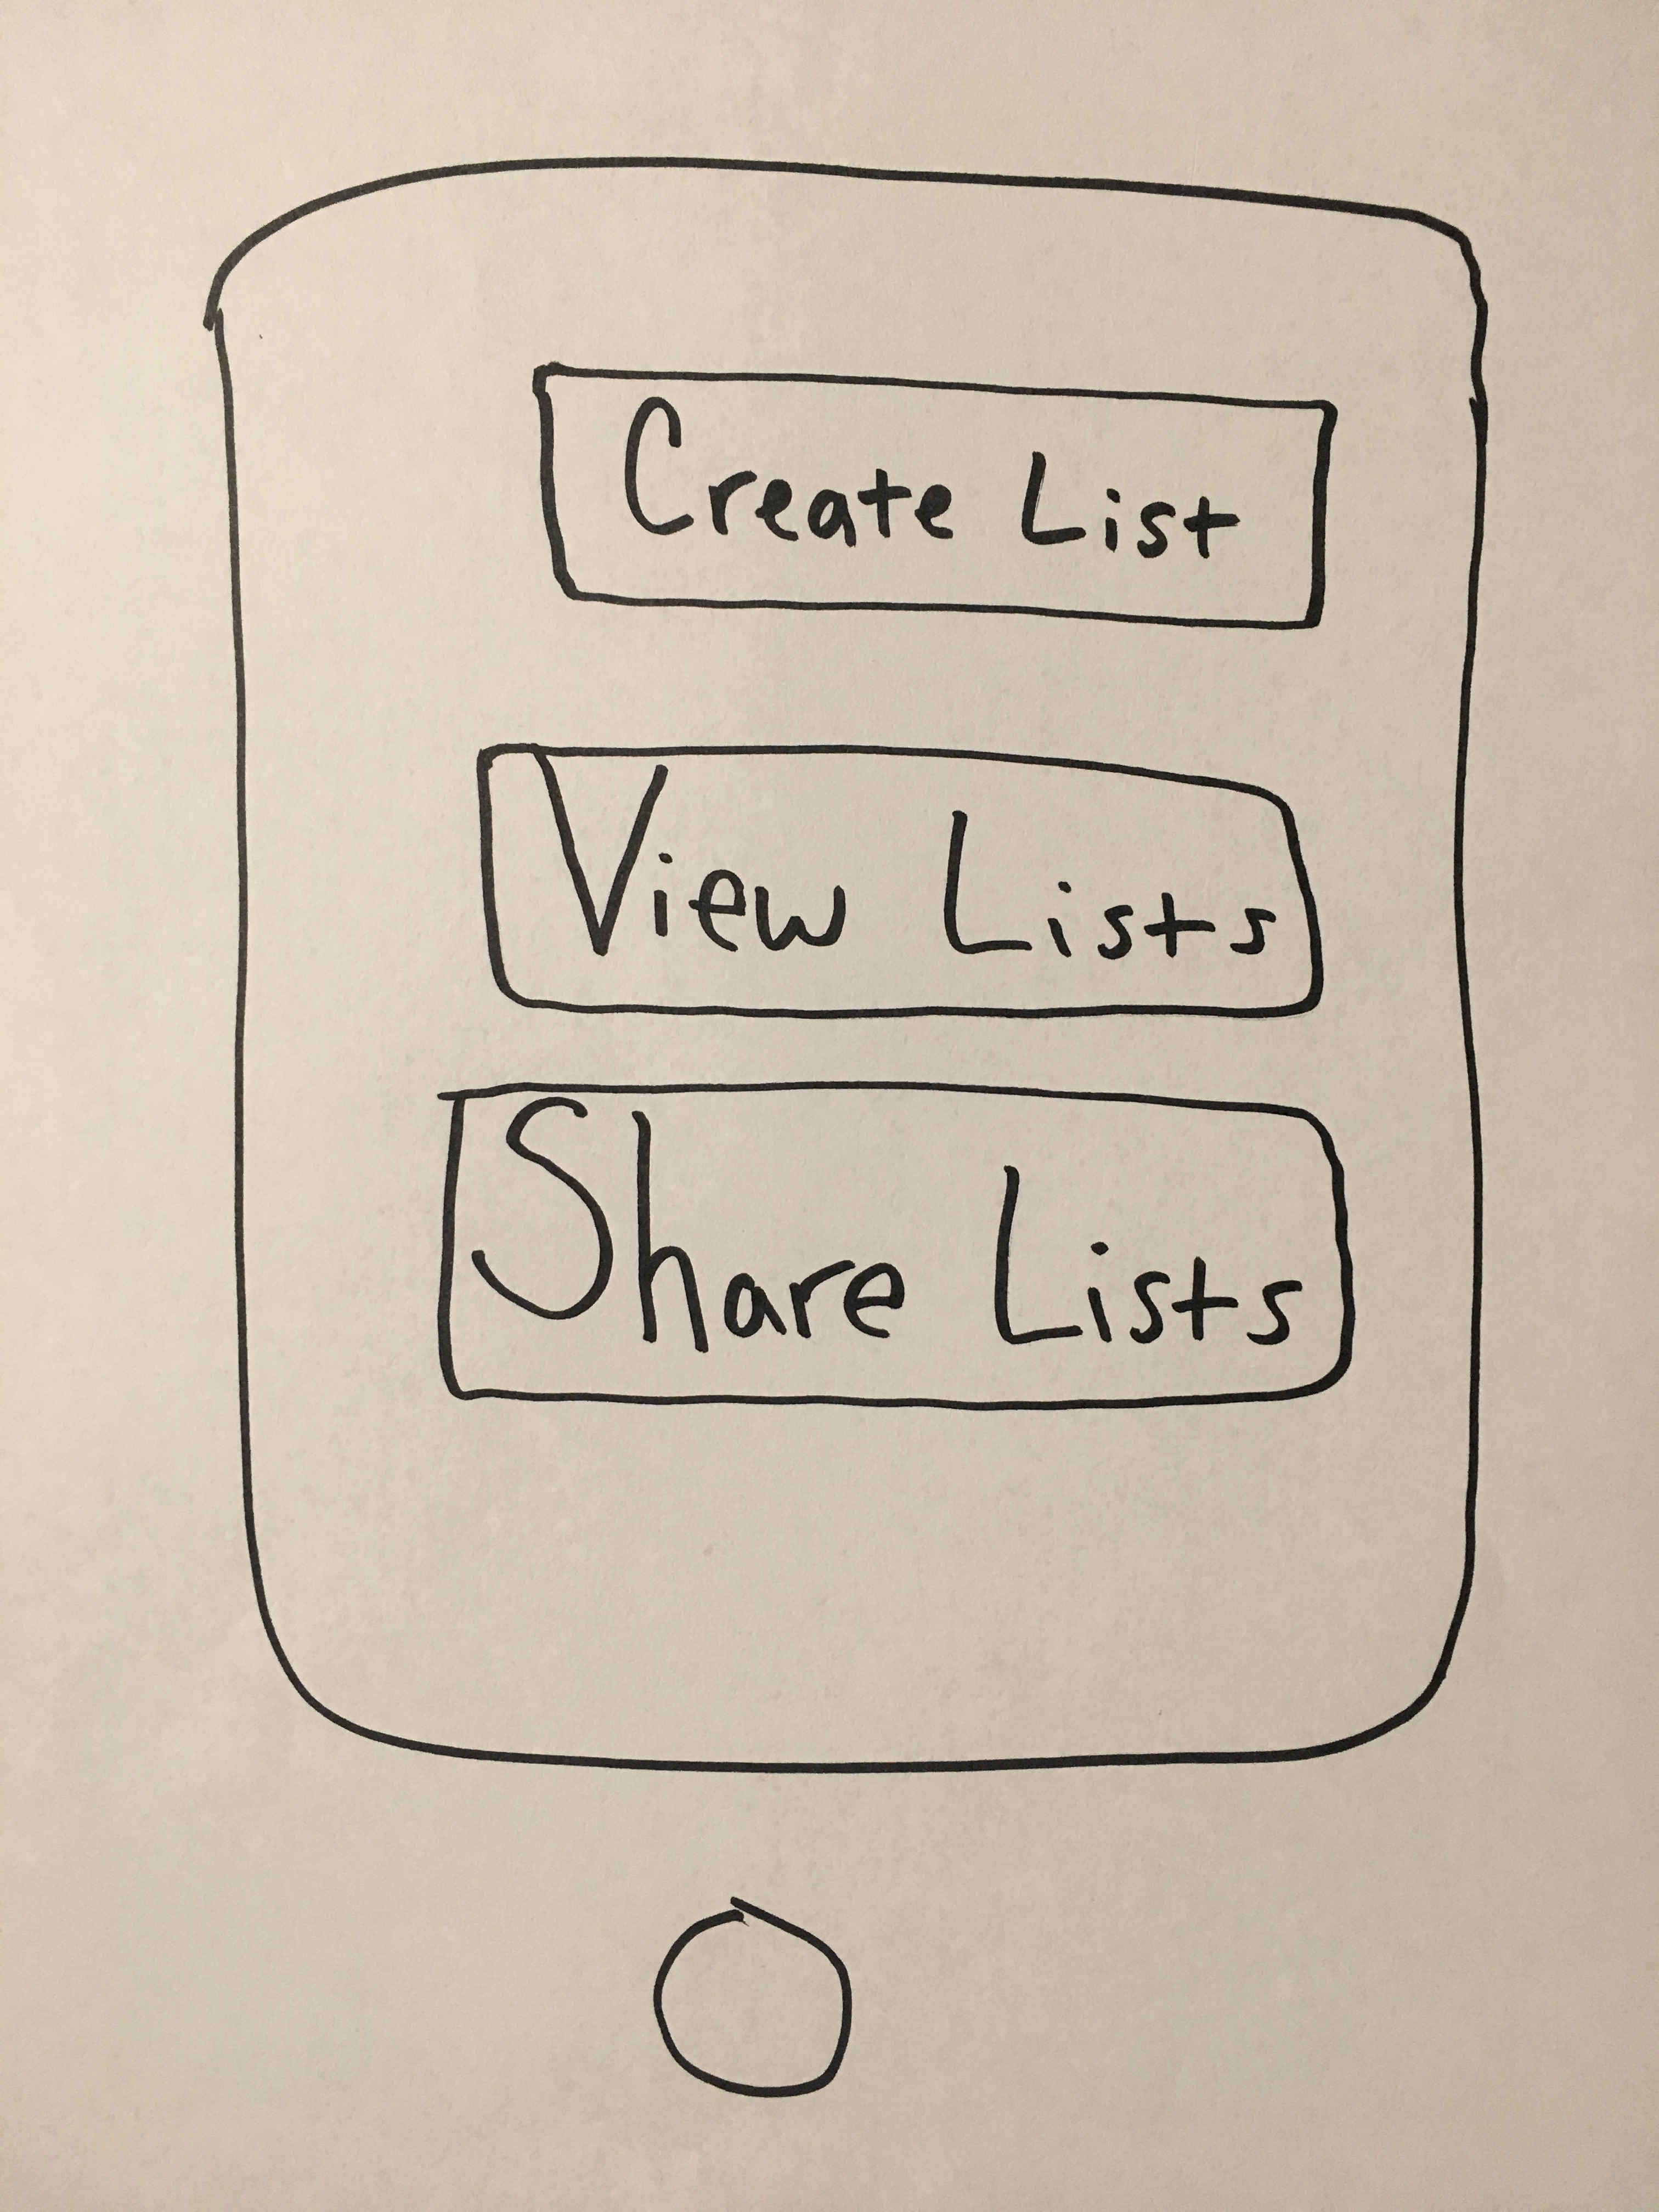 Create List
View Lists
Share Lists